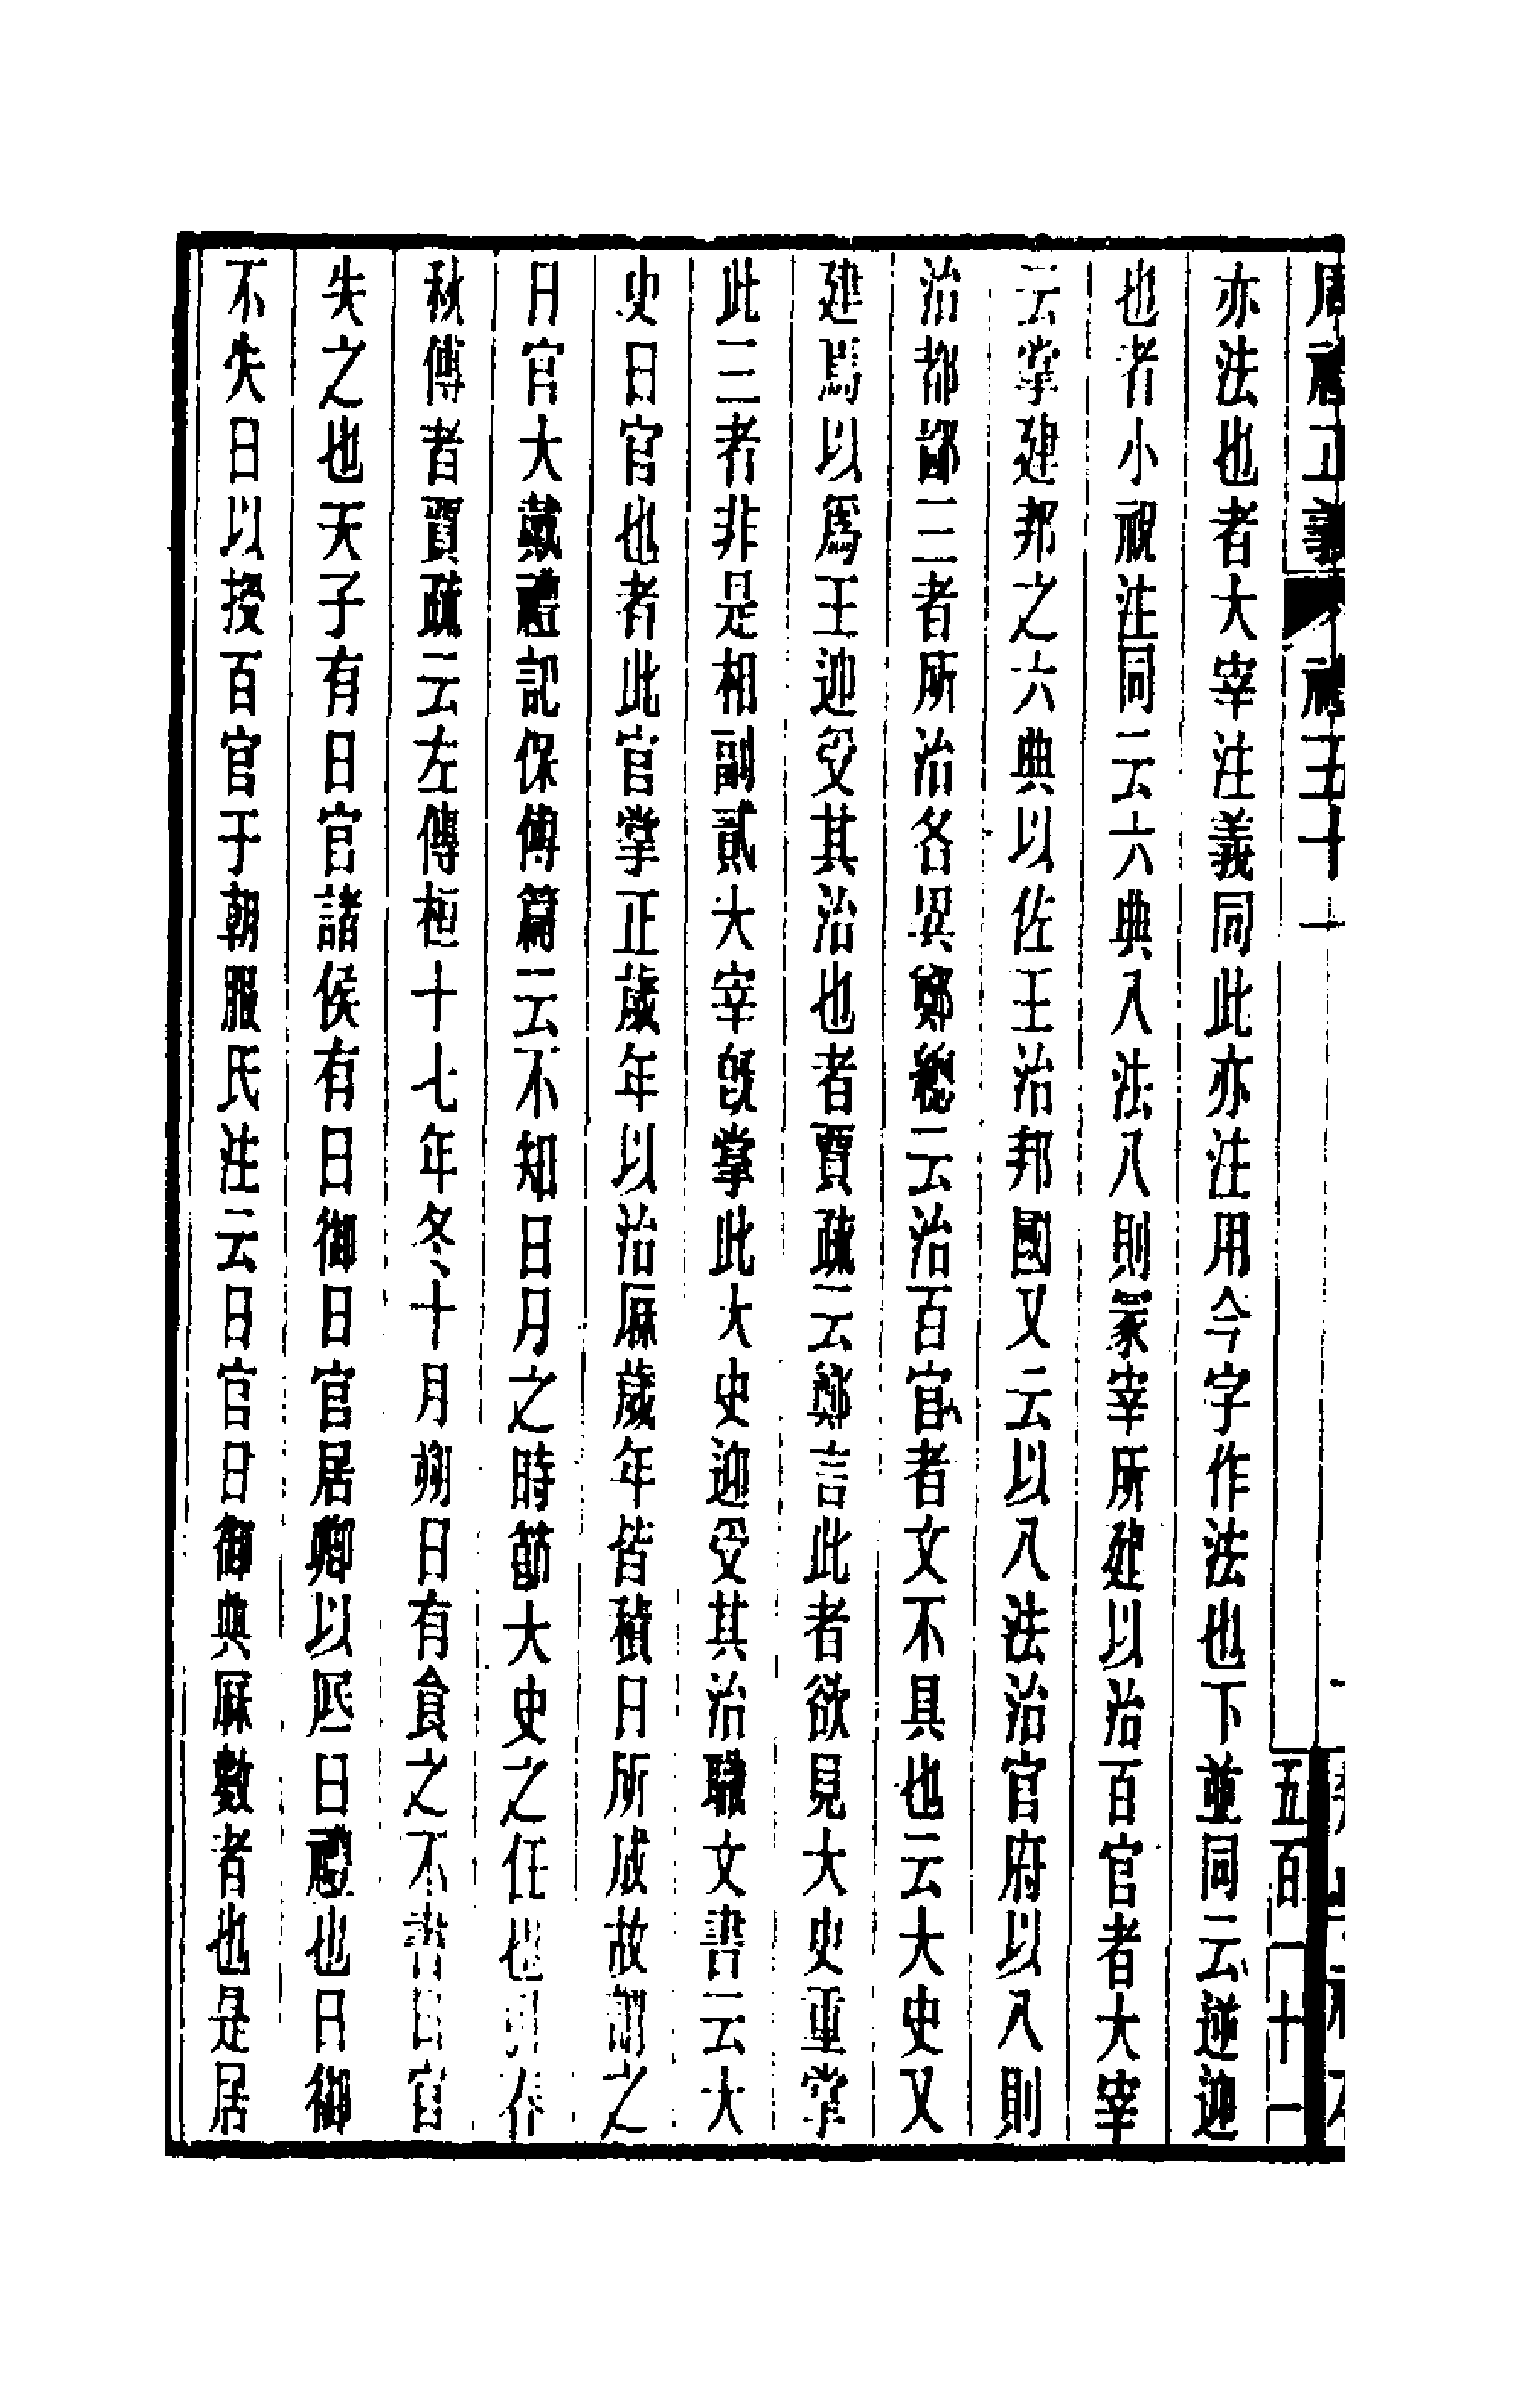 周禮正義
禮五十一
五百一十一
亦法也者大宰注義同此亦注用今字作法也下並同云逆迎
也者小祝注同云六典八法八則冢宰所建以治百官者大宰
云掌建邦之六典以佐王治邦國又云以八法治官府以八則
治都鄙三者所治各異鄭緫云治百官者文不具也云大史又
建焉以爲王迎受其治也者賈疏云鄭言此者欲見大史重掌
此三者非是相副貳大宰旣掌此大史迎受其治職文書云大
史日官也者此官掌正歲年以治厤歲年皆積日所成故謂之
日官大戴禮記保傅篇云不知日月之時節大史之任也引春
秋傳者賈疏云左傳桓十七年冬十月朔日有食之不書日官
失之也天子有日官諸侯有日御日官居卿以底日禮也日御
不失日以授百官于朝服氏注云日官日御典厤數者也是居